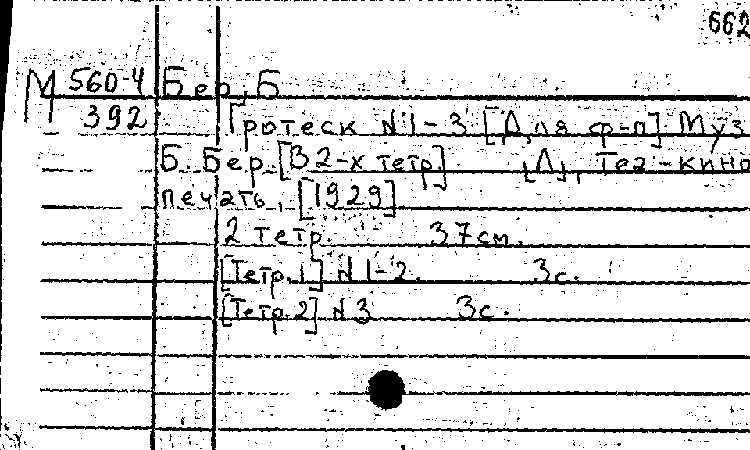 662
М 560-4 Бер, Б
392 Гротеск №1-3 [Для ф-п] Муз
Б. Бер. [В 2-х тетр] [Л], Теа-кино
печать, [1929]
2 тетр. 37см.
[Тетр.1] №1-2. 3с.
[Тетр.2] №3 3с.